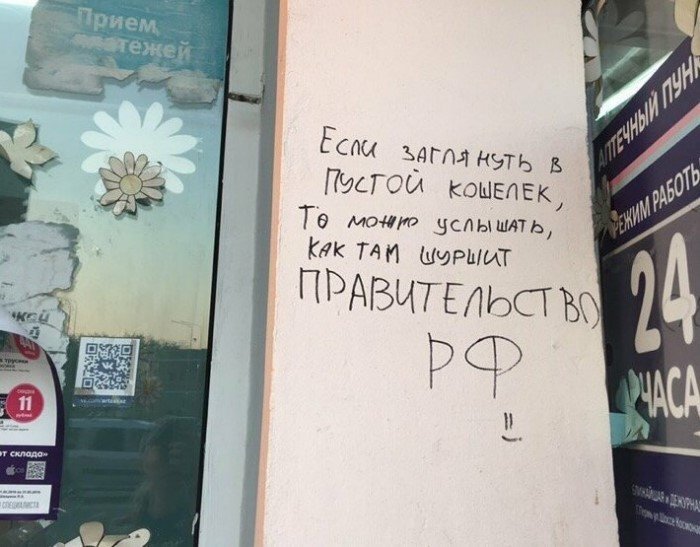 Прием
платежей
ЕСЛИ ЗАГЛЯНУТЬ В
ПУСТОЙ КОШЕЛЕК,
ТО МОЖНО УСЛЫШАТЬ,
КАК ТАМ ШУРШИТ
ПРАВИТЕЛЬСТВО
РФ
АПТЕЧНЫЙ ПУНК
РЕЖИМ РАБОТЫ
24
ЧАСА
БЛИЖАЙШАЯ И ДЕЖУРНАЯ
Г.Пермь ул. Шоссе Космонав
трусики
СКИДКА
11
рублей
от склада»
СПЕЦИАЛИСТА